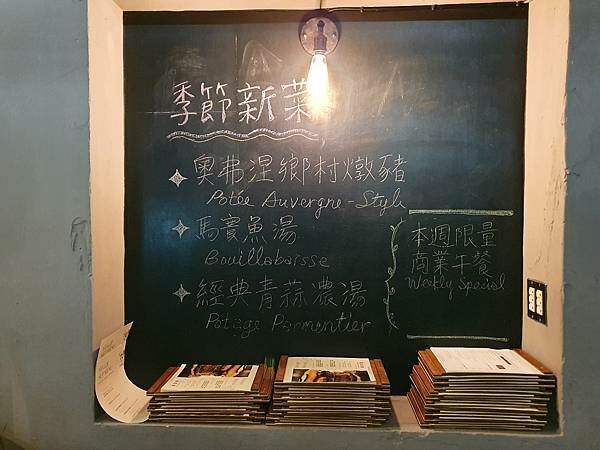 季節新菜
奧弗涅鄉村燉豬
Potée Auvergne-Style
馬賽魚湯
Bouillabaisse
經典青蒜濃湯
Potage Parmentier
本週限量
商業午餐
Weekly Special